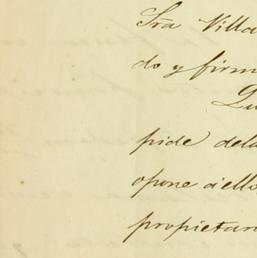 Sra Villa
do y firm
Lu
pide dela
opone á ello
propietan